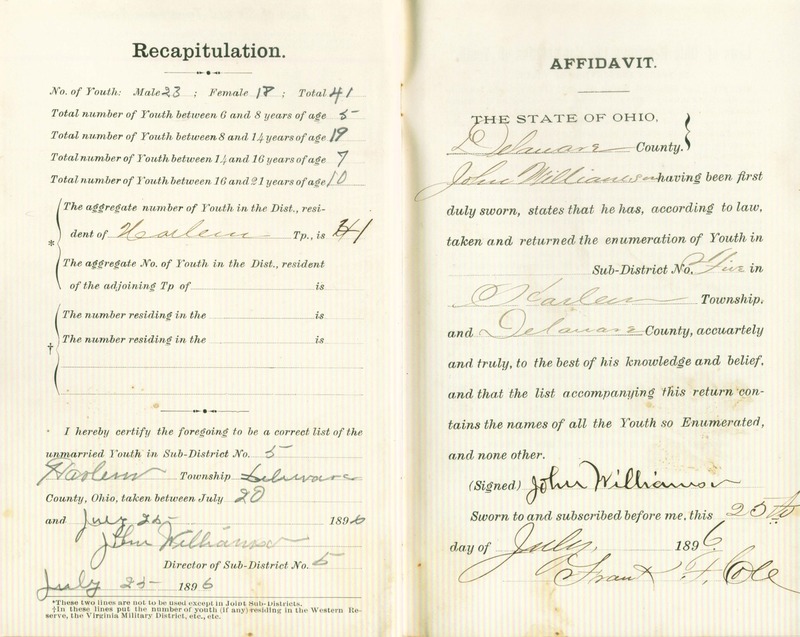 Recapitulation.
No. of Youth: Male 23 ; Female 18 ; Total 41
Total number of Youth between 6 and 8 years of age 5
Total number of Youth between 8 and 14 years of age 19
Total number of Youth between 14 and 16 years of age 7
Total number of Youth between 16 and 21 years of age 10
The aggregate number of Youth in the Dist., resi-
* dent of Harlem Tp., is 41
The aggregate No. of Youth in the Dist., resident
of the adjoining Tp of is
The number residing in the is
† The number residing in the is
I hereby certify the foregoing to be a correct list of the
unmarried Youth in Sub-District No. 5
Harlem Township Delaware
County, Ohio, taken between July 20
and July 25 1896
John Williamson
Director of Sub-District No. 5
July 25 1896
*These two lines are not to be used except in Joint Sub-Districts.
†In these lines put the number of youth (if any) residing in the Western Re-
serve, the Virginia Military District, etc., etc.
AFFIDAVIT.
THE STATE OF OHIO,
Delaware County.
John Williamson having been first
duly sworn, states that he has, according to law,
taken and returned the enumeration of Youth in
Sub-District No. Five in
Harlem Township,
and Delaware County, accuartely
and truly, to the best of his knowledge and belief,
and that the list accompanying this return con-
tains the names of all the Youth so Enumerated,
and none other.
(Signed) John Williamson
Sworn to and subscribed before me, this 25th
day of July, 1896
Frank F. Cole